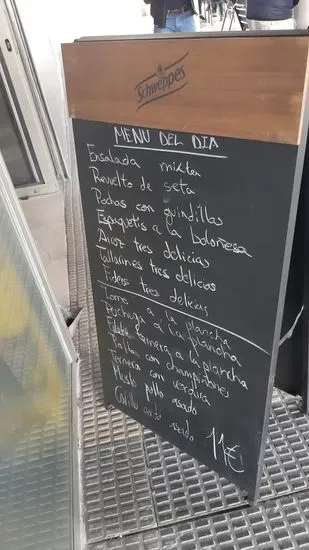 Schweppes
MENU DEL DIA
Ensalada mixta
Revuelto de seta
Pochas con guindillas
Espaguetis a la boloñesa
Arroz tres delicias
Tallarines tres delicias
Fideos tres delicias
Lomo a la plancha
Pechuga a la plancha
Filete ternera a la plancha
Pollo con champiñones
Ternera con verdura
Muslo pollo asado
cerdo asado 11€